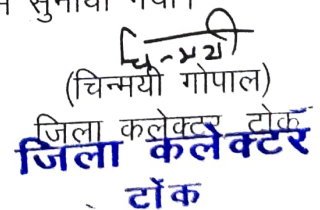 सुनाया गया।
चिन्मयी
(चिन्मयी गोपाल)
जिला कलेक्टर टोंक
जिला कलेक्टर
टोंक